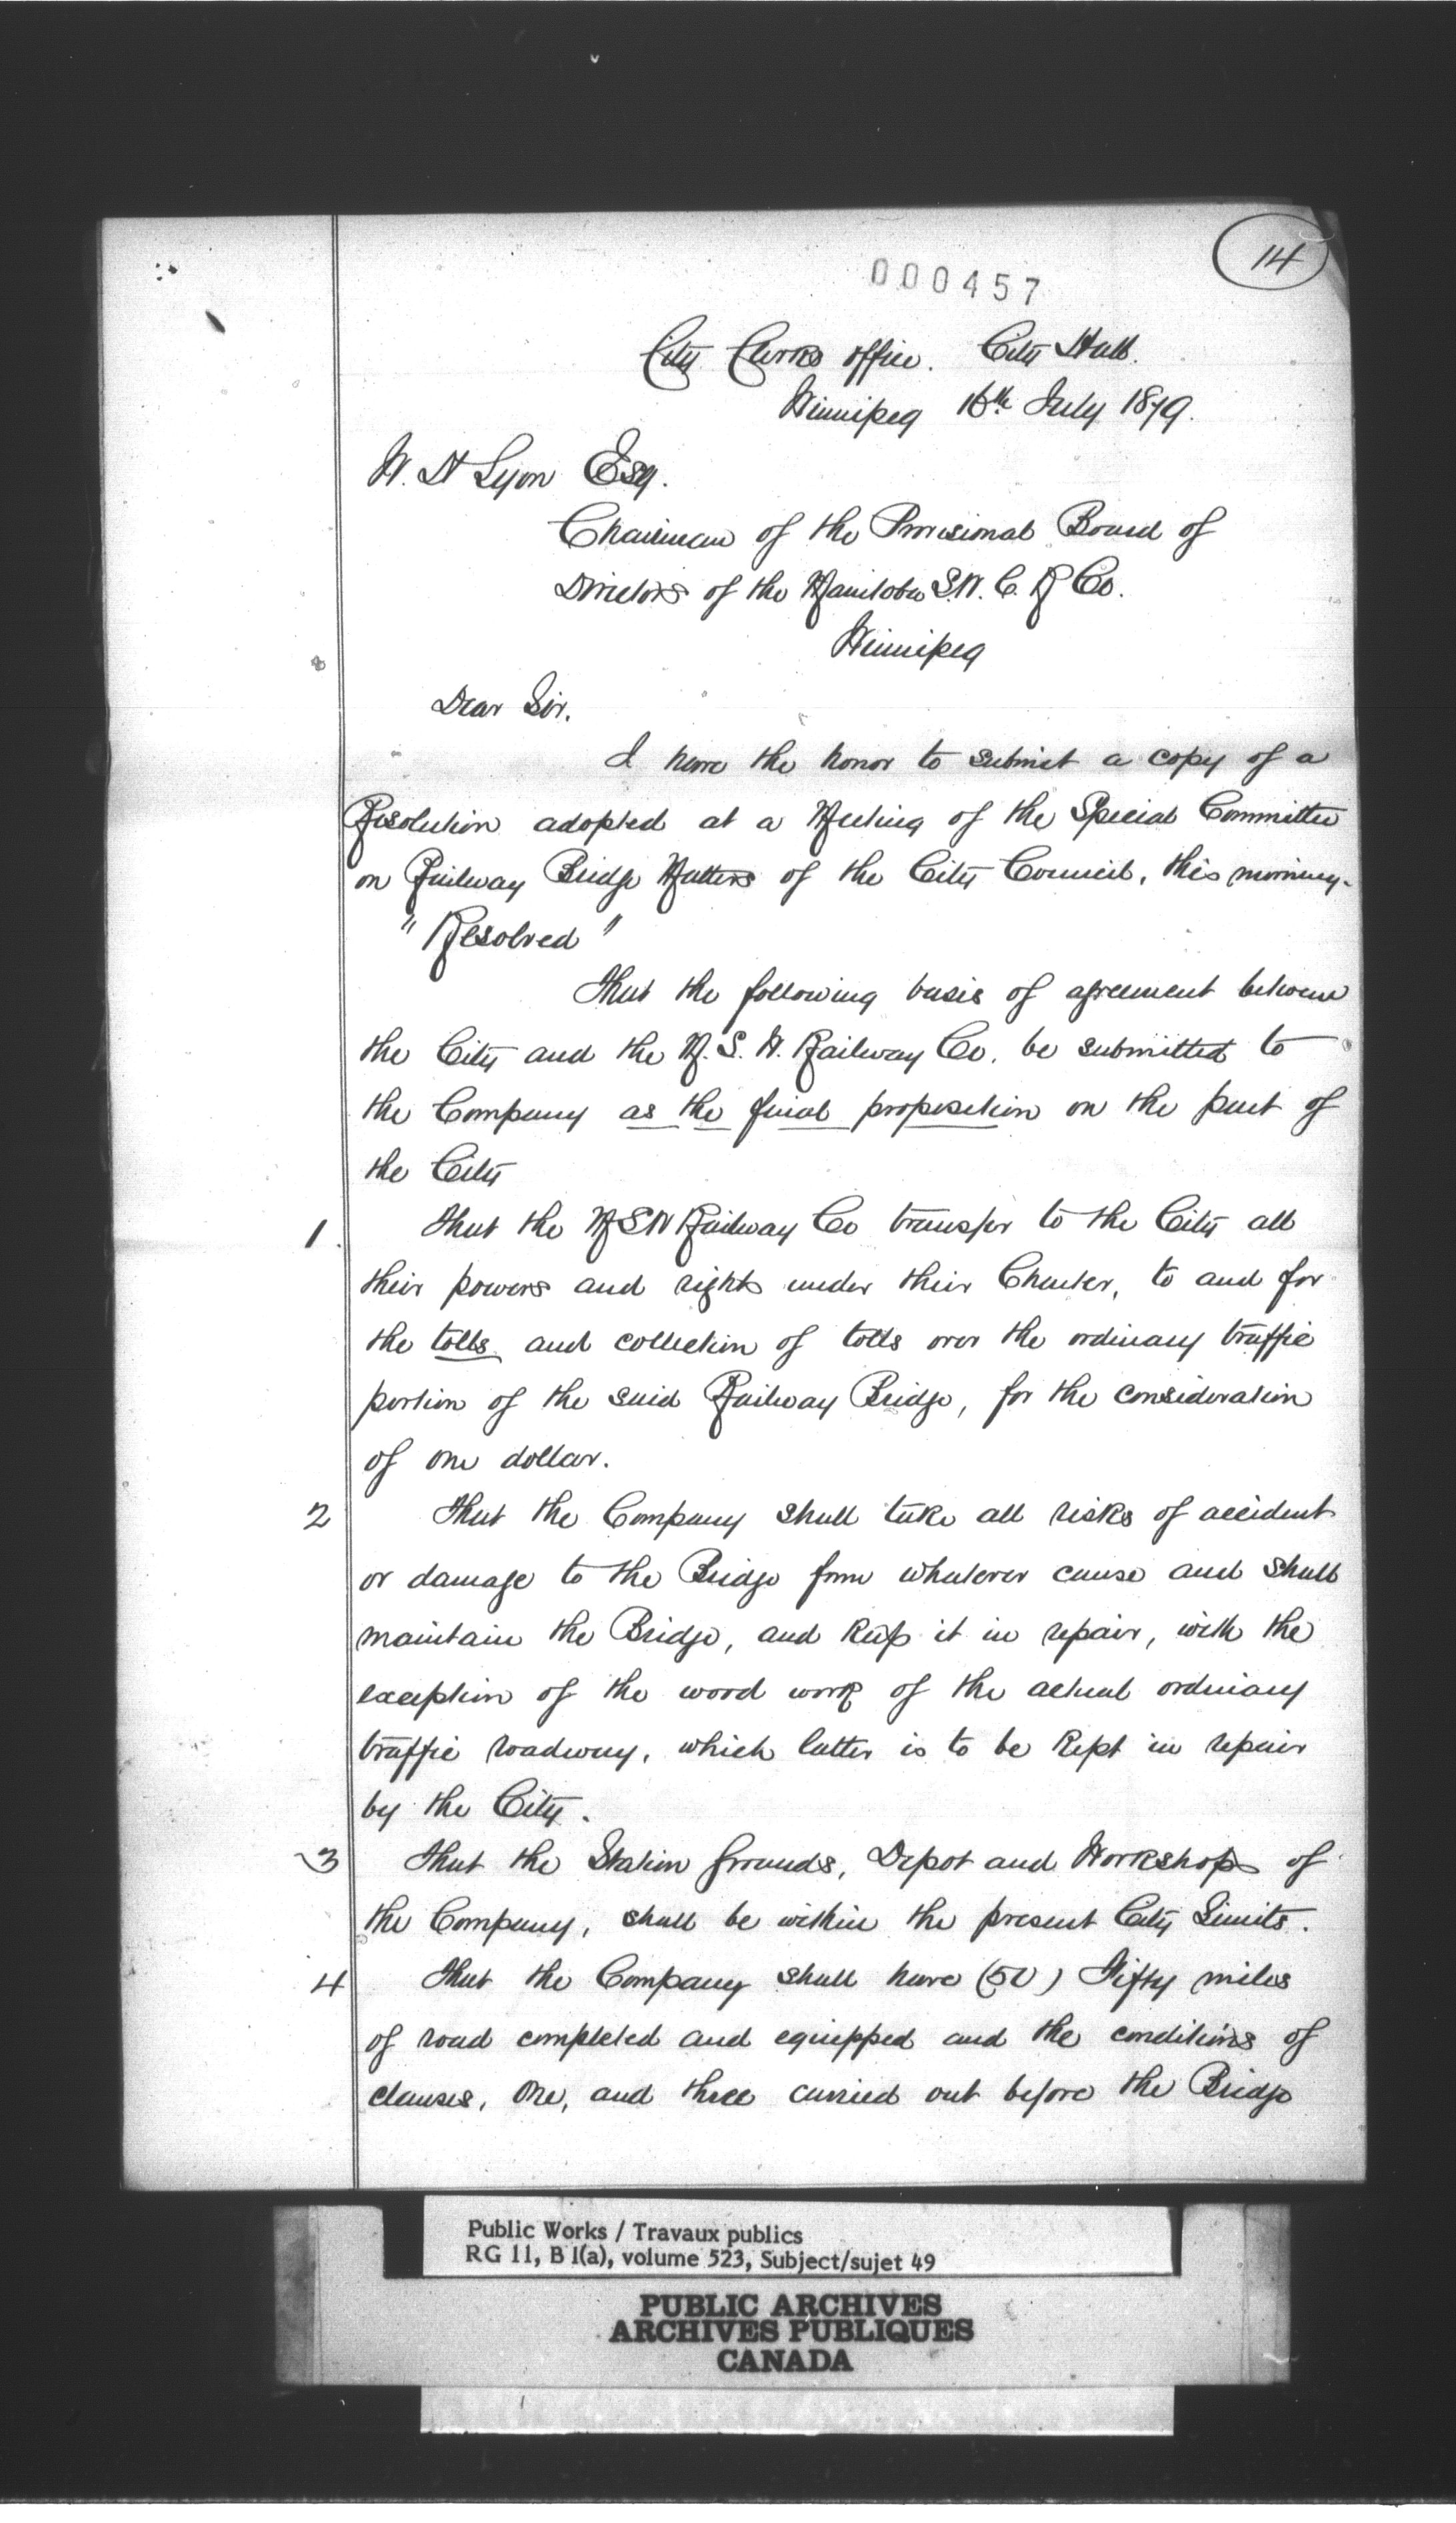 14
000457
City Clerks office. City Hall.
Winnipeg 16th July 1879.
W. H Lyon Esq.
Chairman of the Provisional Board of
Directors of the Manitoba S.W. C. R Co.
Winnipeg
Dear Sir.
I have the honor to submit a copy of a
Resolution adopted at a Meeting of the Special Committee
on Railway Bridge Matters of the City Council, this morning.
"Resolved"
That the following basis of agreement between
the City and the M. S. W. Railway Co. be submitted to
the Company as the final proposition on the part of
the City
1. That the M S W Railway Co transfer to the City all
their powers and rights under their Charter, to and for
the tolls and collection of tolls over the ordinary traffic
portion of the said Railway Bridge, for the consideration
of one dollar.
2 That the Company shall take all risks of accident
or damage to the Bridge from whatever cause and shall
maintain the Bridge, and keep it in repair, with the
exception of the wood work of the actual ordinary
traffic roadway, which latter is to be kept in repair
by the City.
3 That the Station grounds, Depot and Workshops of
the Company, shall be within the present City Limits.
4 That the Company shall have (50) Fifty miles
of road completed and equipped and the conditions of
clauses, one, and three carried out before the Bridge
Public Works / Travaux publics
RG 11, B 1(a), volume 523, Subject/sujet 49
PUBLIC ARCHIVES
ARCHIVES PUBLIQUES
CANADA